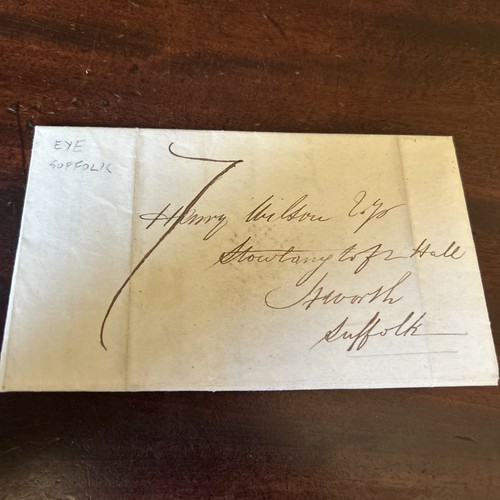 EYE
SUFFOLK
7
Henry Wilson Esqr
Stowlangtoft Hall
Ixworth
Suffolk